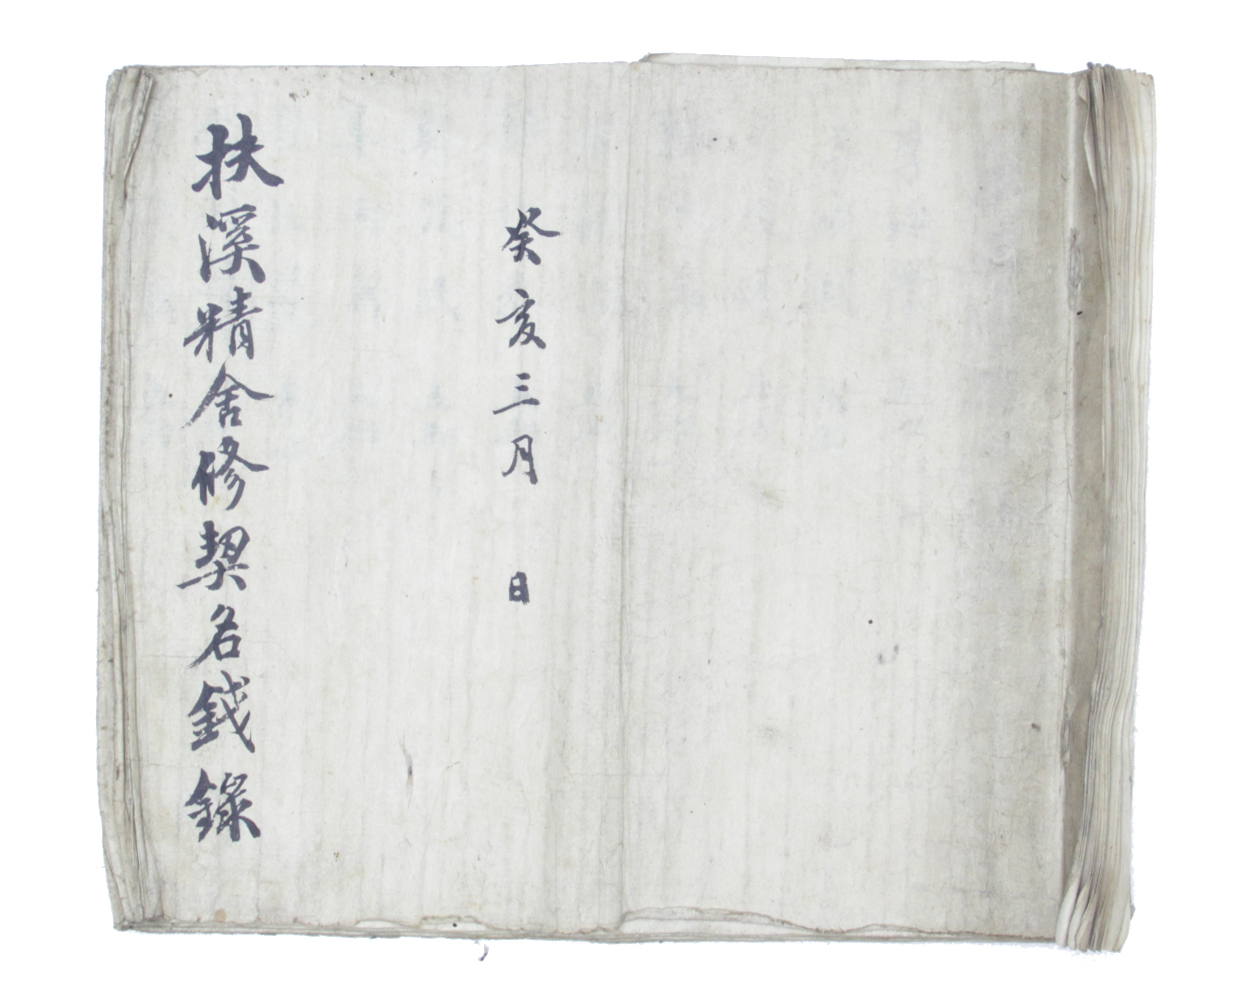 癸亥三月 日
扶溪精舍修契名錢錄